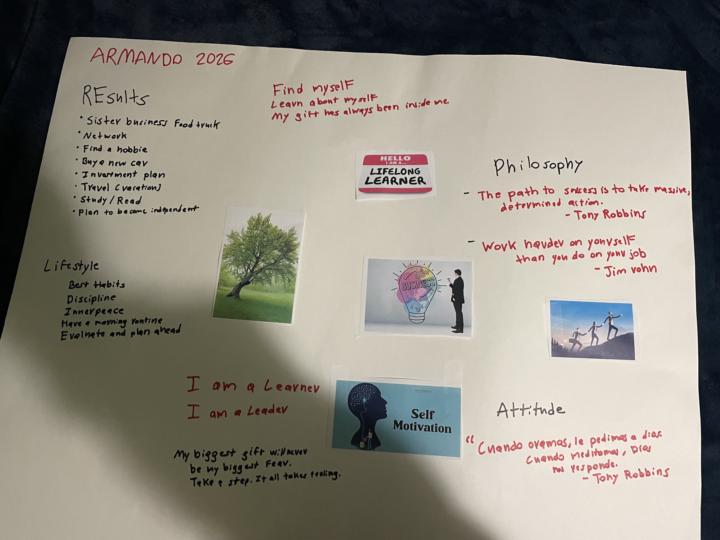 ARMANDO 2026
REsults
• Sister business Food truck
• Network
• Find a hobbie
• Buy a new car
• Investment plan
• Travel (vacations)
• Study / Read
• Plan to become independent
Find myself
Learn about myself
My gift has always been inside me
HELLO
I AM A...
LIFELONG
LEARNER
Philosophy
- The path to success is to take massive,
determined action.
- Tony Robbins
- Work harder on yourself
than you do on your job
- Jim rohn
Lifestyle
Best Habits
Discipline
Innerpeace
Have a morning routine
Evaluate and plan ahead
BUSINESS
I am a Learner
I am a Leader
My biggest gift will never
be my biggest Fear.
Take a step. It all takes
Self
Motivation
Attitude
"Cuando oramos, le pedimos a dios
Cuando meditamos, Dios
nos responde.
- Tony Robbins